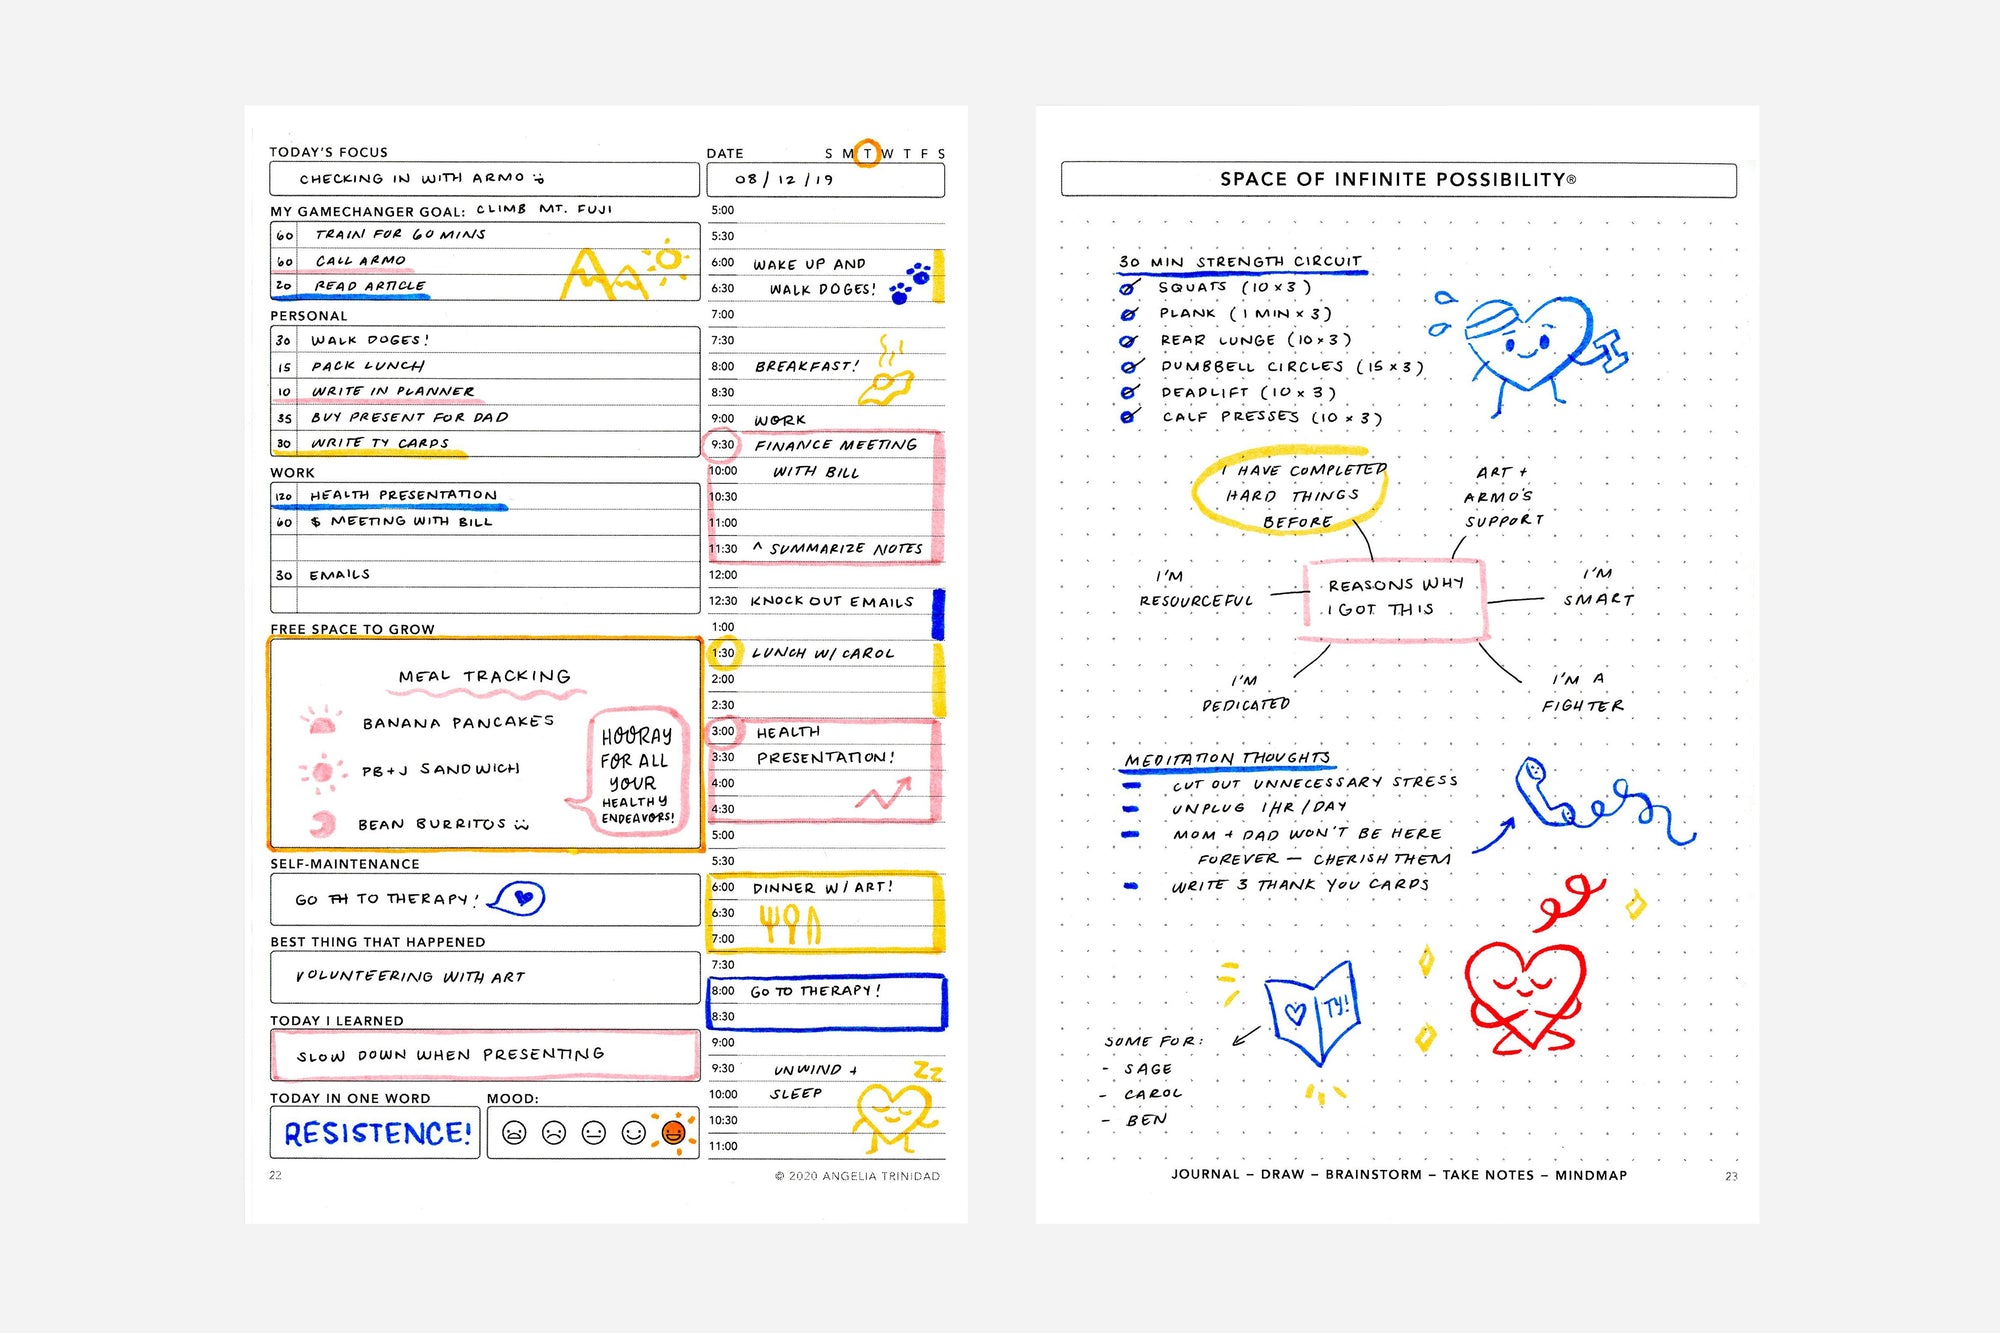 TODAY'S FOCUS
CHECKING IN WITH ARMO
MY GAMECHANGER GOAL: CLIMB MT. FUJI
60 TRAIN FOR 60 MINS
60 CALL ARMO
20 READ ARTICLE
PERSONAL
30 WALK DOGES!
15 PACK LUNCH
10 WRITE IN PLANNER
35 BUY PRESENT FOR DAD
30 WRITE TY CARDS
WORK
120 HEALTH PRESENTATION
60 $ MEETING WITH BILL
30 EMAILS
FREE SPACE TO GROW
MEAL TRACKING
BANANA PANCAKES
PB+J SANDWICH
BEAN BURRITOS
HOORAY
FOR ALL
YOUR
HEALTHY
ENDEAVORS!
SELF-MAINTENANCE
GO TH TO THERAPY!
BEST THING THAT HAPPENED
VOLUNTEERING WITH ART
TODAY I LEARNED
SLOW DOWN WHEN PRESENTING
TODAY IN ONE WORD
RESISTENCE!
MOOD:
22
DATE S M T W T F S
08/12/19
5:00
5:30
6:00 WAKE UP AND
6:30 WALK DOGES!
7:00
7:30
8:00 BREAKFAST!
8:30
9:00 WORK
9:30 FINANCE MEETING
10:00 WITH BILL
10:30
11:00
11:30 ^ SUMMARIZE NOTES
12:00
12:30 KNOCK OUT EMAILS
1:00
1:30 LUNCH W/ CAROL
2:00
2:30
3:00 HEALTH
3:30 PRESENTATION!
4:00
4:30
5:00
5:30
6:00 DINNER W/ ART!
6:30
7:00
7:30
8:00 GO TO THERAPY!
8:30
9:00
9:30 UNWIND +
10:00 SLEEP
10:30
11:00
ZZ
© 2020 ANGELIA TRINIDAD
SPACE OF INFINITE POSSIBILITY®
30 MIN STRENGTH CIRCUIT
SQUATS (10 x 3)
PLANK (1 MIN x 3)
REAR LUNGE (10 x 3)
DUMBBELL CIRCLES (15 x 3)
DEADLIFT (10 x 3)
CALF PRESSES (10 x 3)
I HAVE COMPLETED
HARD THINGS
BEFORE
ART +
ARMO'S
SUPPORT
I'M
RESOURCEFUL
REASONS WHY
I GOT THIS
I'M
SMART
I'M
DEDICATED
I'M A
FIGHTER
MEDITATION THOUGHTS
CUT OUT UNNECESSARY STRESS
UNPLUG 1HR/DAY
MOM + DAD WON'T BE HERE
FOREVER — CHERISH THEM
WRITE 3 THANK YOU CARDS
TY!
SOME FOR:
- SAGE
- CAROL
- BEN
JOURNAL – DRAW – BRAINSTORM – TAKE NOTES – MINDMAP
23